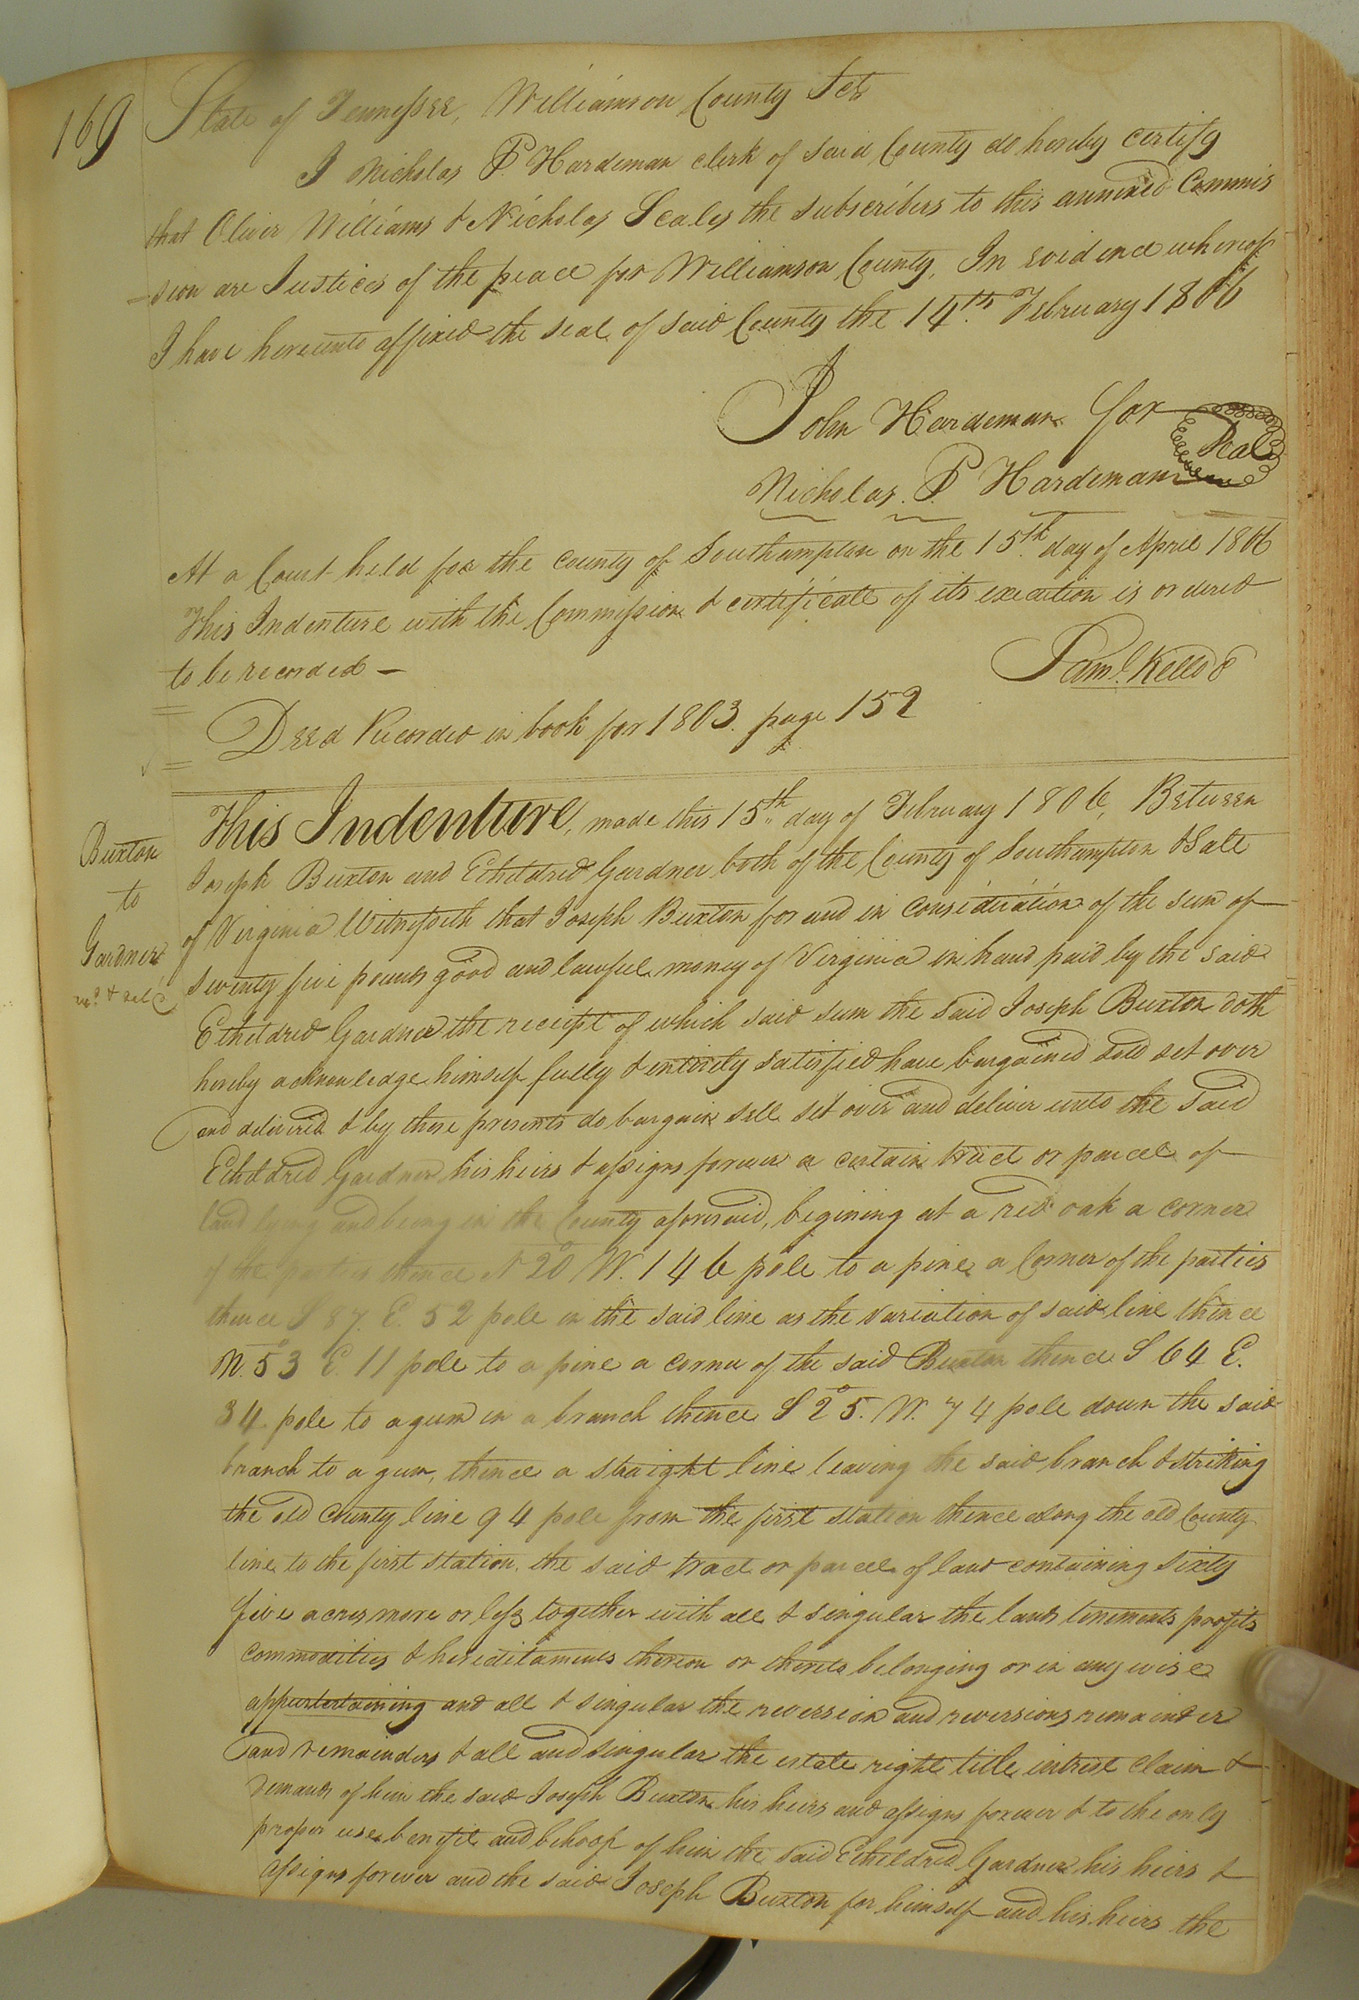 169
State of Tennessee, Williamson County Sct
I Nicholas P Hardeman clerk of said County do hereby certify
that Oliver Williams & Nicholas Scales the subscribers to this annexed Commis
=sion are Justices of the peace for Williamson County, In evidence whereof
I have hereunto affixed the seal of said County the 14th February 1806
John Hardeman for
Seal
Nicholas P. Hardeman
At a Court held for the county of Southampton on the 15th day of April 1806
This Indenture with the Commission & certificate of its execution is ordered
to be recorded —
Saml. Kello
Deed Recorded in book for 1803. page 152
Buxton
to
Gardner
This Indenture, made this 15th day of February 1806, Between
Joseph Buxton and Etheldred Gardner both of the County of Southampton & Sate
of Virginia Witnesseth that Joseph Buxton for and in consideration of the sum of
seventy five pounds good and lawful money of Virginia in hand paid by the said
Etheldred Gardner the receipt of which said sum the said Joseph Buxton doth
hereby acknowledge himself fully & entirely satisfied have bargained sold set over
and deliverd & by these presents do bargain sell set over and deliver unto the said
Etheldred Gardner his heirs & assigns forever a certain tract or parcel of
land lying and being in the County aforesaid, begining at a red oak a corner
of the parties thence N 20° W. 146 pole to a pine a Corner of the parties
thence S 87. E. 52 pole in the said line as the variation of said line thence
N. 53° E. 11 pole to a pine a corner of the said Buxton thence S 64 E.
34 pole to a gum in a branch thence S 25°. W. 74 pole down the said
branch to a gum, thence a straight line leaving the said branch & striking
the old county line 94 pole from the first station thence along the old County
line to the first station. the said tract or parcel of land containing sixty
five acres more or less together with all & singular the lands tenements profits
commodities & hereditaments thereon or thereto belonging or in any wise
appurtertaining and all & singular the reversion and reversions remainder
and remainders & all and singular the estate right title intrest claim &
demands of him the said Joseph Buxton his heirs and assigns forever & to the only
proper use benefit and behoof of him the said Etheldred Gardner his heirs &
assigns forever and the said Joseph Buxton for himself and his heirs the